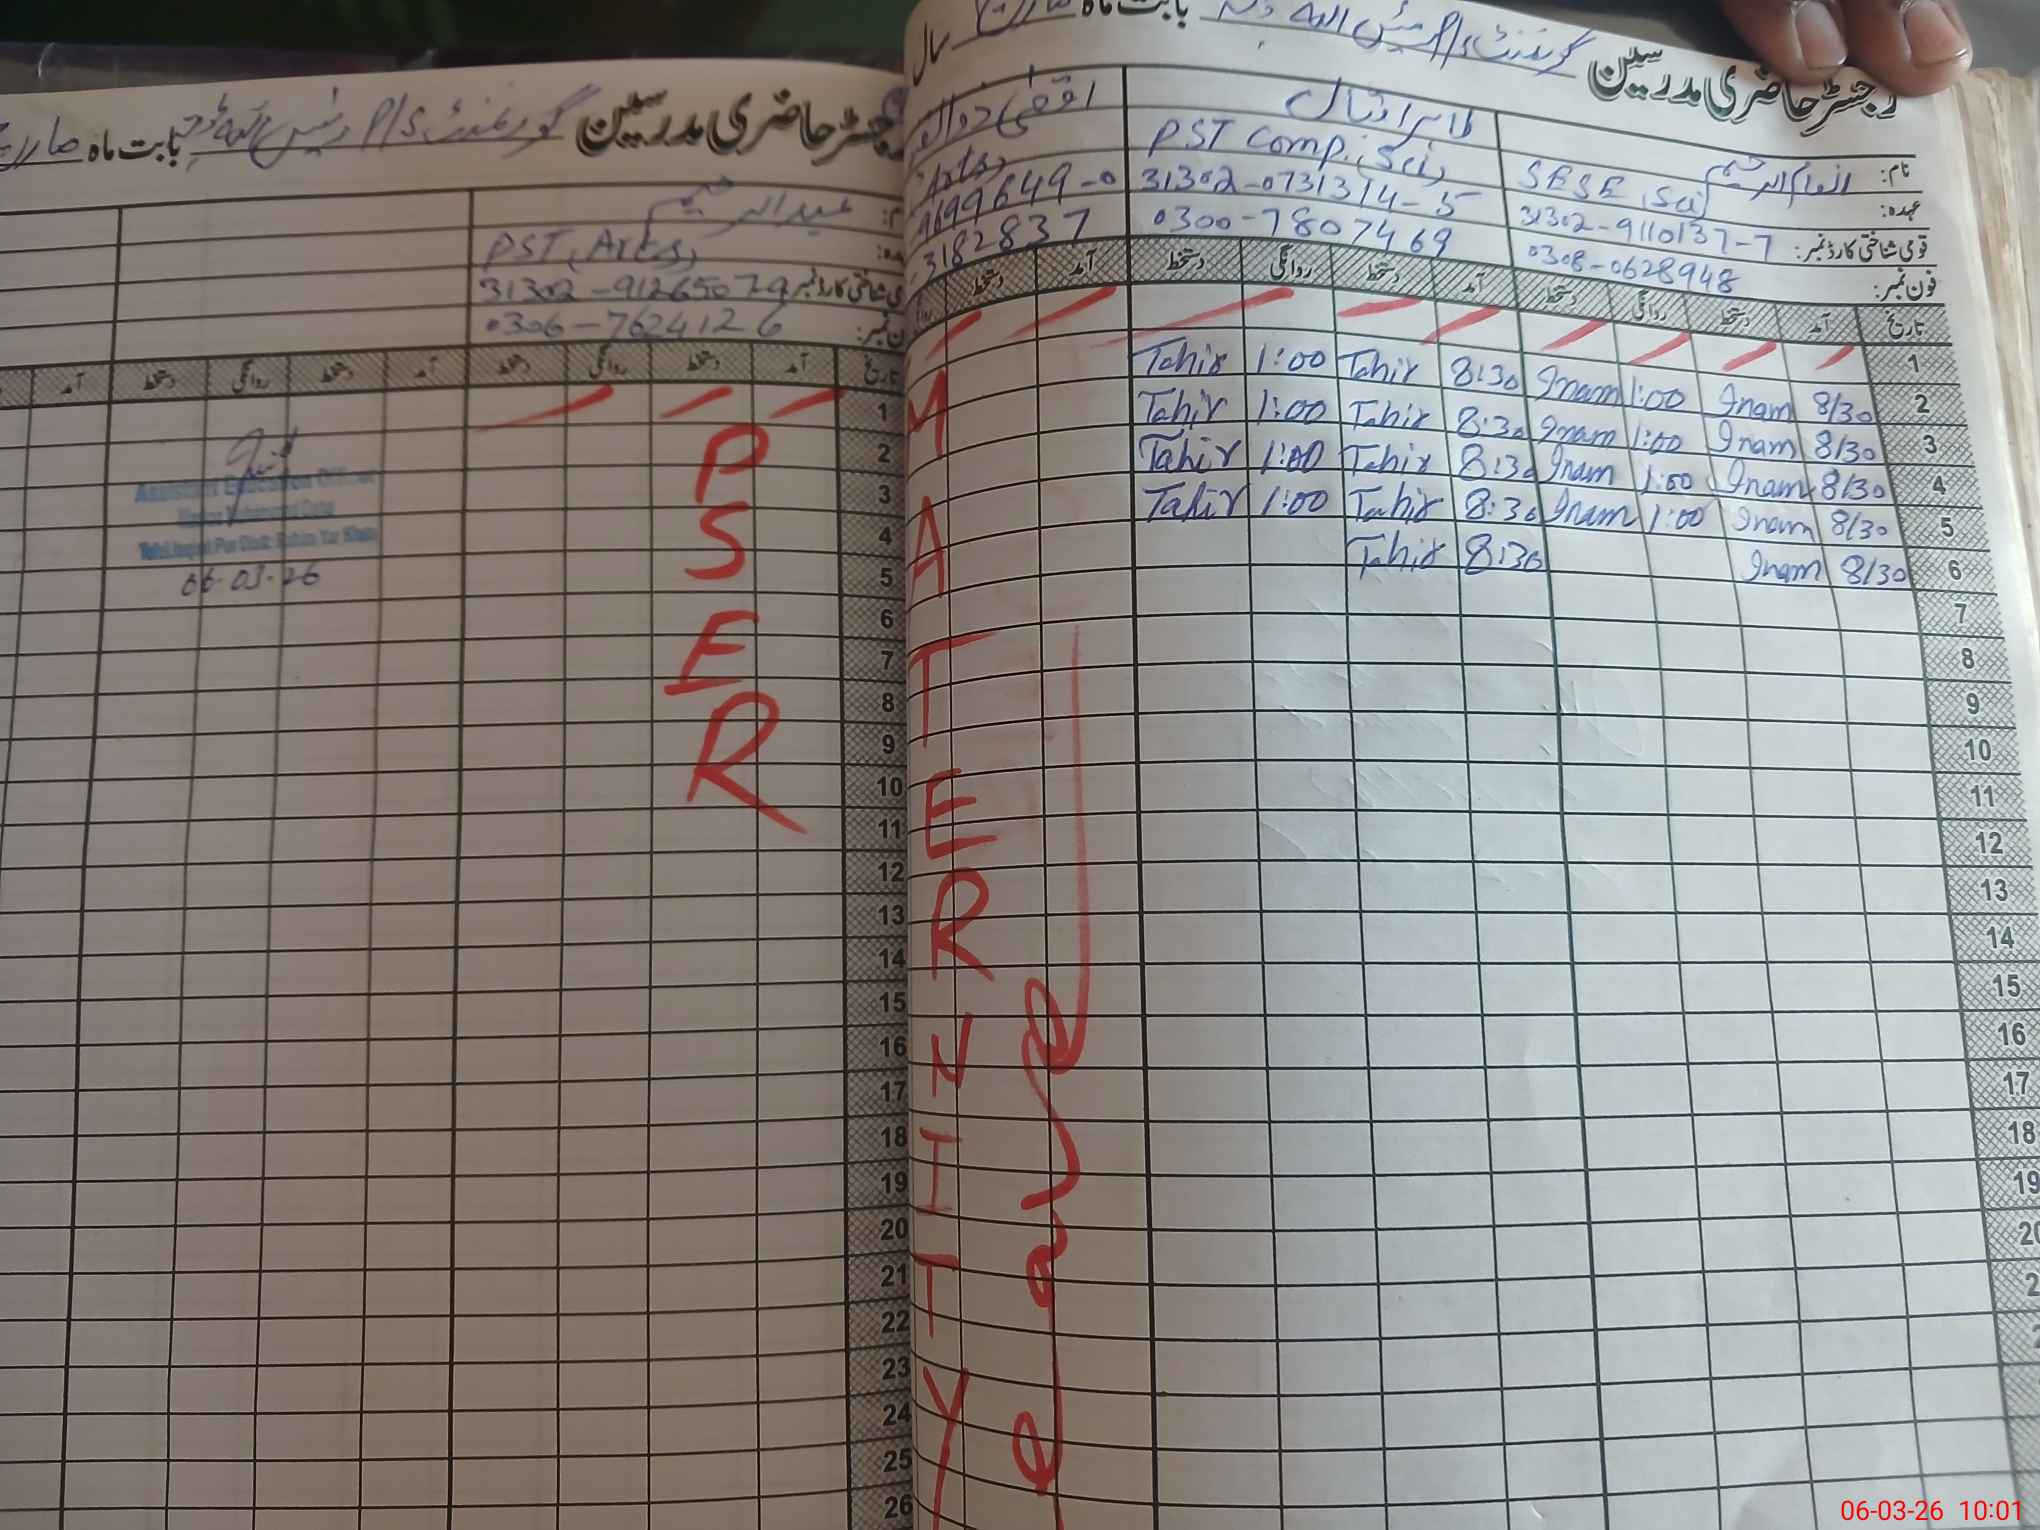 رجسٹر حاضری مدرسین گورنمنٹ P/S بابت ماہ مارچ سال
نام: انعام الرحیم
طاہر اقبال
اقصیٰ
عہدہ: SESE (Sci)
PST Comp. (Sci)
Arts)
قومی شناختی کارڈ نمبر: 31302-9110137-7
31302-0731314-5
9699649-0
فون نمبر: 0308-0628948
0300-7807469
3182837
تاریخ آمد دستخط روانگی دستخط آمد دستخط روانگی دستخط آمد دستخط
1
2 8/30 Inam 1:00 Inam 8:30 Tahir 1:00 Tahir
3 8/30 Inam 1:00 Inam 8:30 Tahir 1:00 Tahir
4 8/30 Inam 1:00 Inam 8:30 Tahir 1:00 Tahir
5 8/30 Inam 1:00 Inam 8:30 Tahir 1:00 Tahir
6 8/30 Inam 8:30 Tahir
7
8
9
10
11
12
13
14
15
16
17
18
19
MATERNITY
رجسٹر حاضری مدرسین گورنمنٹ P/S بابت ماہ مارچ
عبدالرحیم
PST (Arts)
شناختی کارڈ نمبر 31302-9126507-9
0306-7624126
تاریخ آمد دستخط روانگی دستخط آمد دستخط روانگی دستخط آمد
1
2
3
4
5
6
7
8
9
10
11
12
13
14
15
16
17
18
19
20
21
22
23
24
25
26
PSER
Assistant Education Officer
06-03-26
06-03-26 10:01